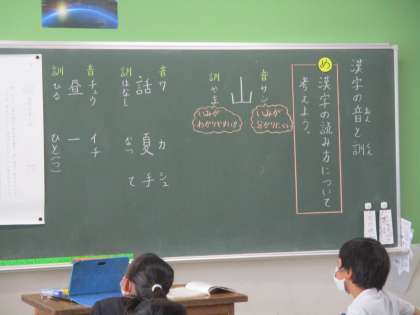 漢字の音と訓
おん
くん
め 漢字の読み方について
考えよう。
音 サン
山
訓 やま
いみが
分かりにくい
いみが
わかりやすい
音 ワ カ シュ
話 夏 手
訓 はなし なつ て
音 チュウ イチ
昼 一
訓 ひる ひと(つ)